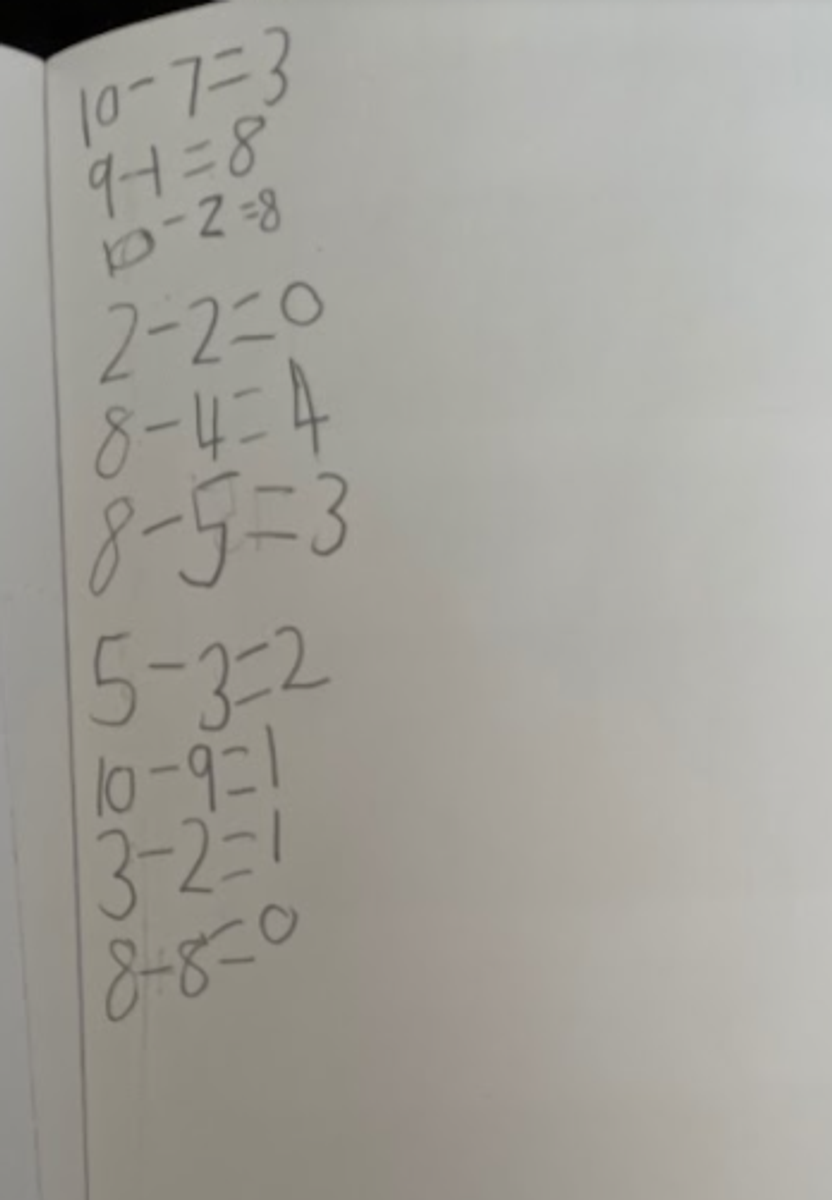 10-7=3
9-1=8
10-2=8
2-2=0
8-4=4
8-5=3
5-3=2
10-9=1
3-2=1
8-8=0